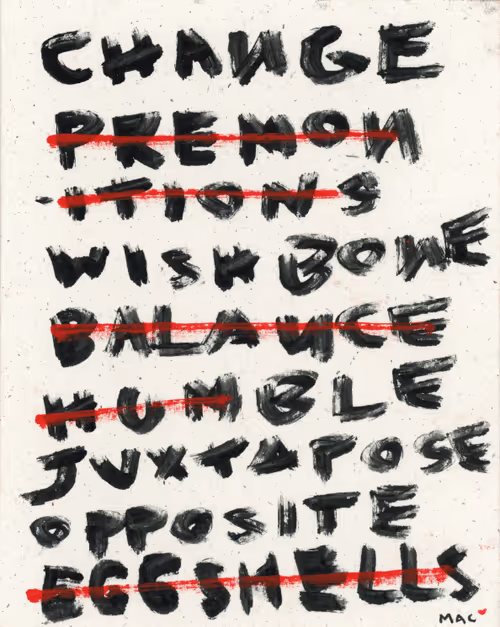 CHANGE
PREMON
ITIONS
WISHBONE
BALANCE
HUMBLE
JUXTAPOSE
OPPOSITE
EGGSHELLS
MAC